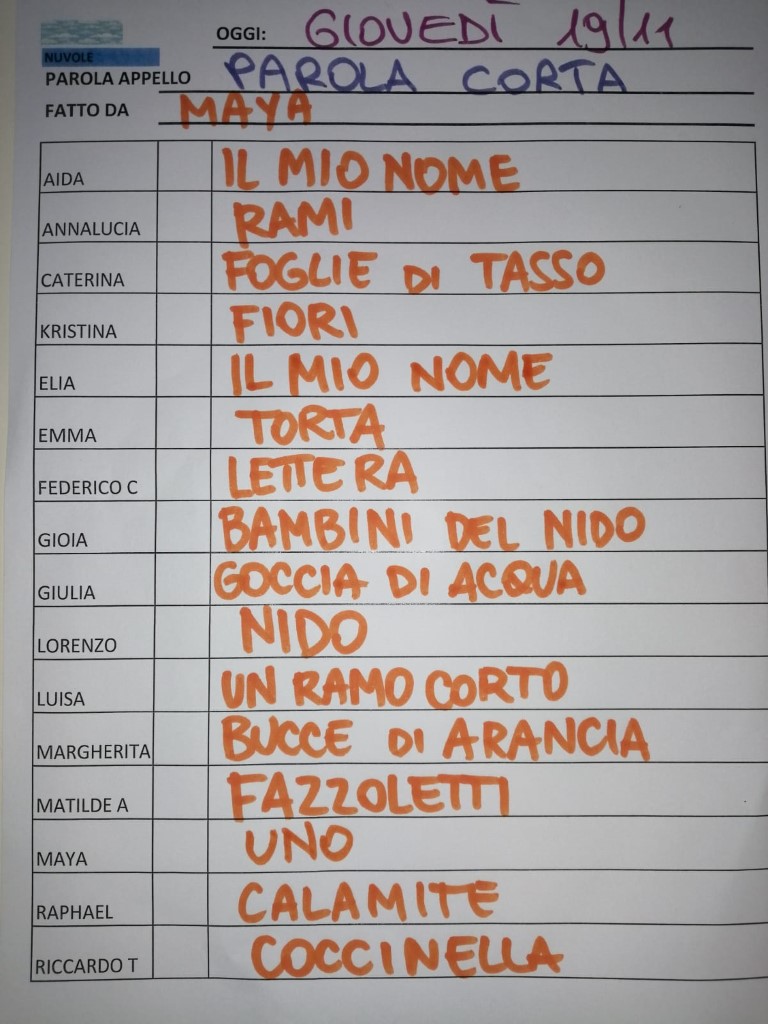 OGGI: GIOVEDÌ 19/11
NUVOLE
PAROLA APPELLO PAROLA CORTA
FATTO DA MAYA
AIDA IL MIO NOME
ANNALUCIA RAMI
CATERINA FOGLIE DI TASSO
KRISTINA FIORI
ELIA IL MIO NOME
EMMA TORTA
FEDERICO C LETTERA
GIOIA BAMBINI DEL NIDO
GIULIA GOCCIA DI ACQUA
LORENZO NIDO
LUISA UN RAMO CORTO
MARGHERITA BUCCE DI ARANCIA
MATILDE A FAZZOLETTI
MAYA UNO
RAPHAEL CALAMITE
RICCARDO T COCCINELLA